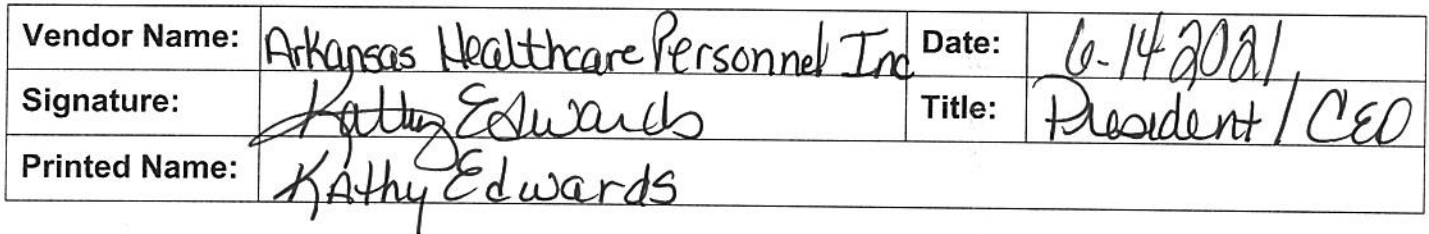 Vendor Name: Arkansas Healthcare Personnel Inc Date: 6-14 2021
Signature: Kathy Edwards Title: President / CEO
Printed Name: Kathy Edwards